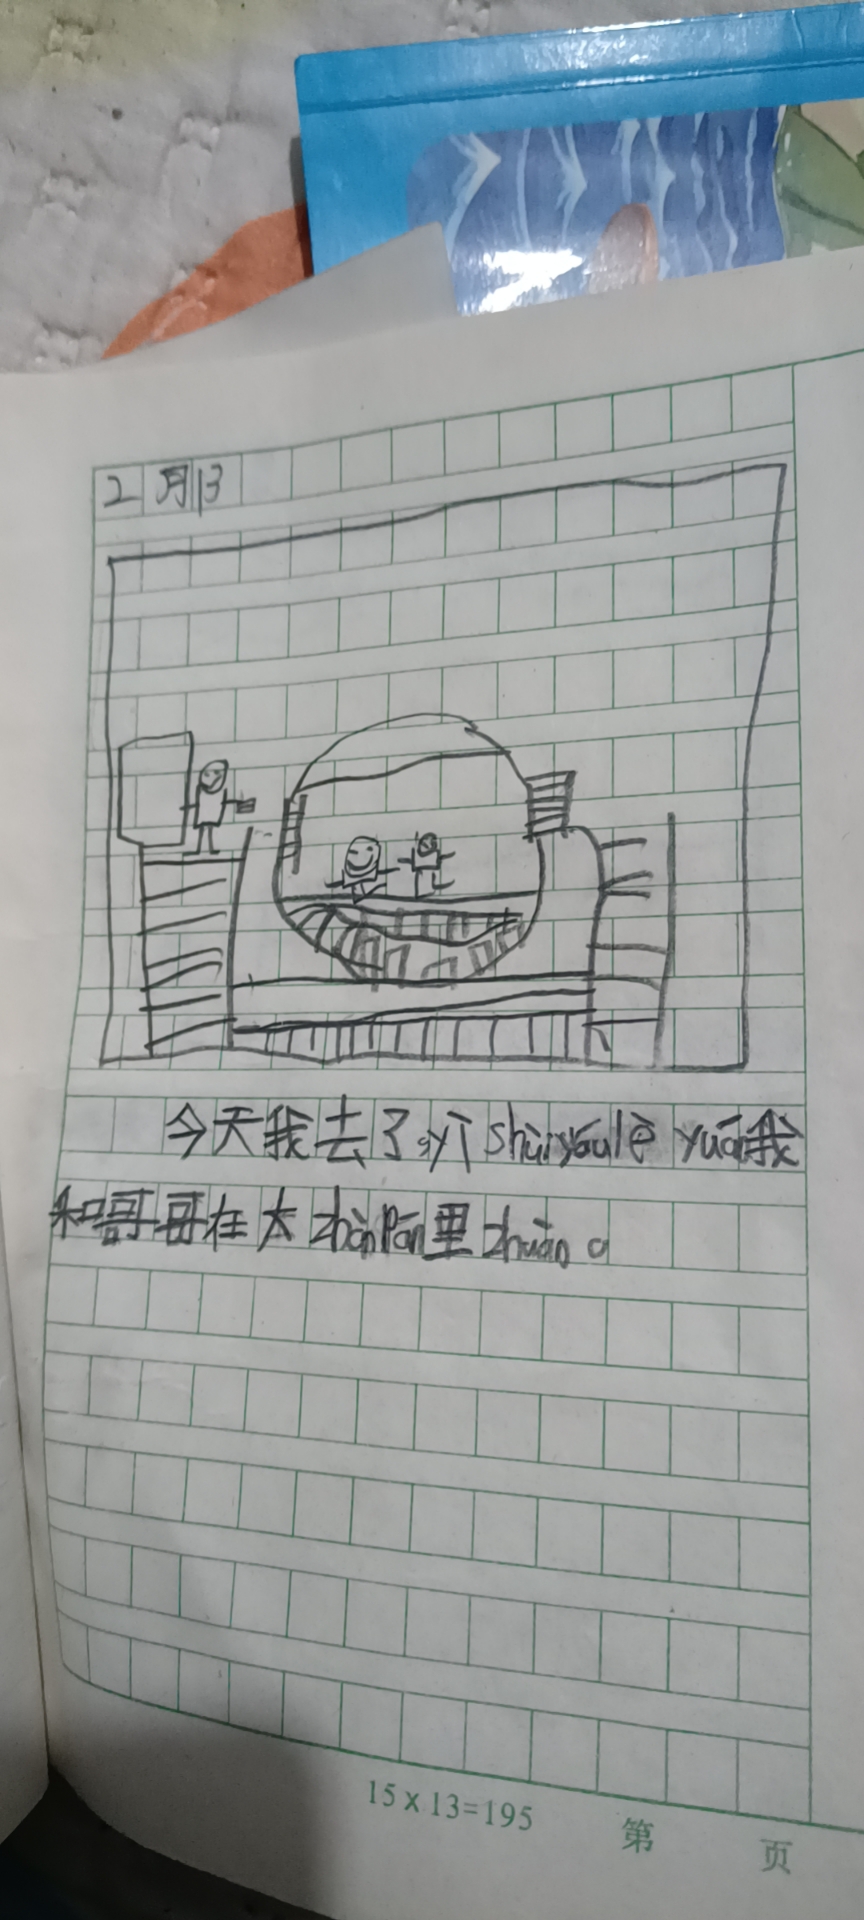 2月13
今天我去了shuǐyóulè yuán我
和哥哥在大zhuànpán里zhuàn。
15×13=195 第 页